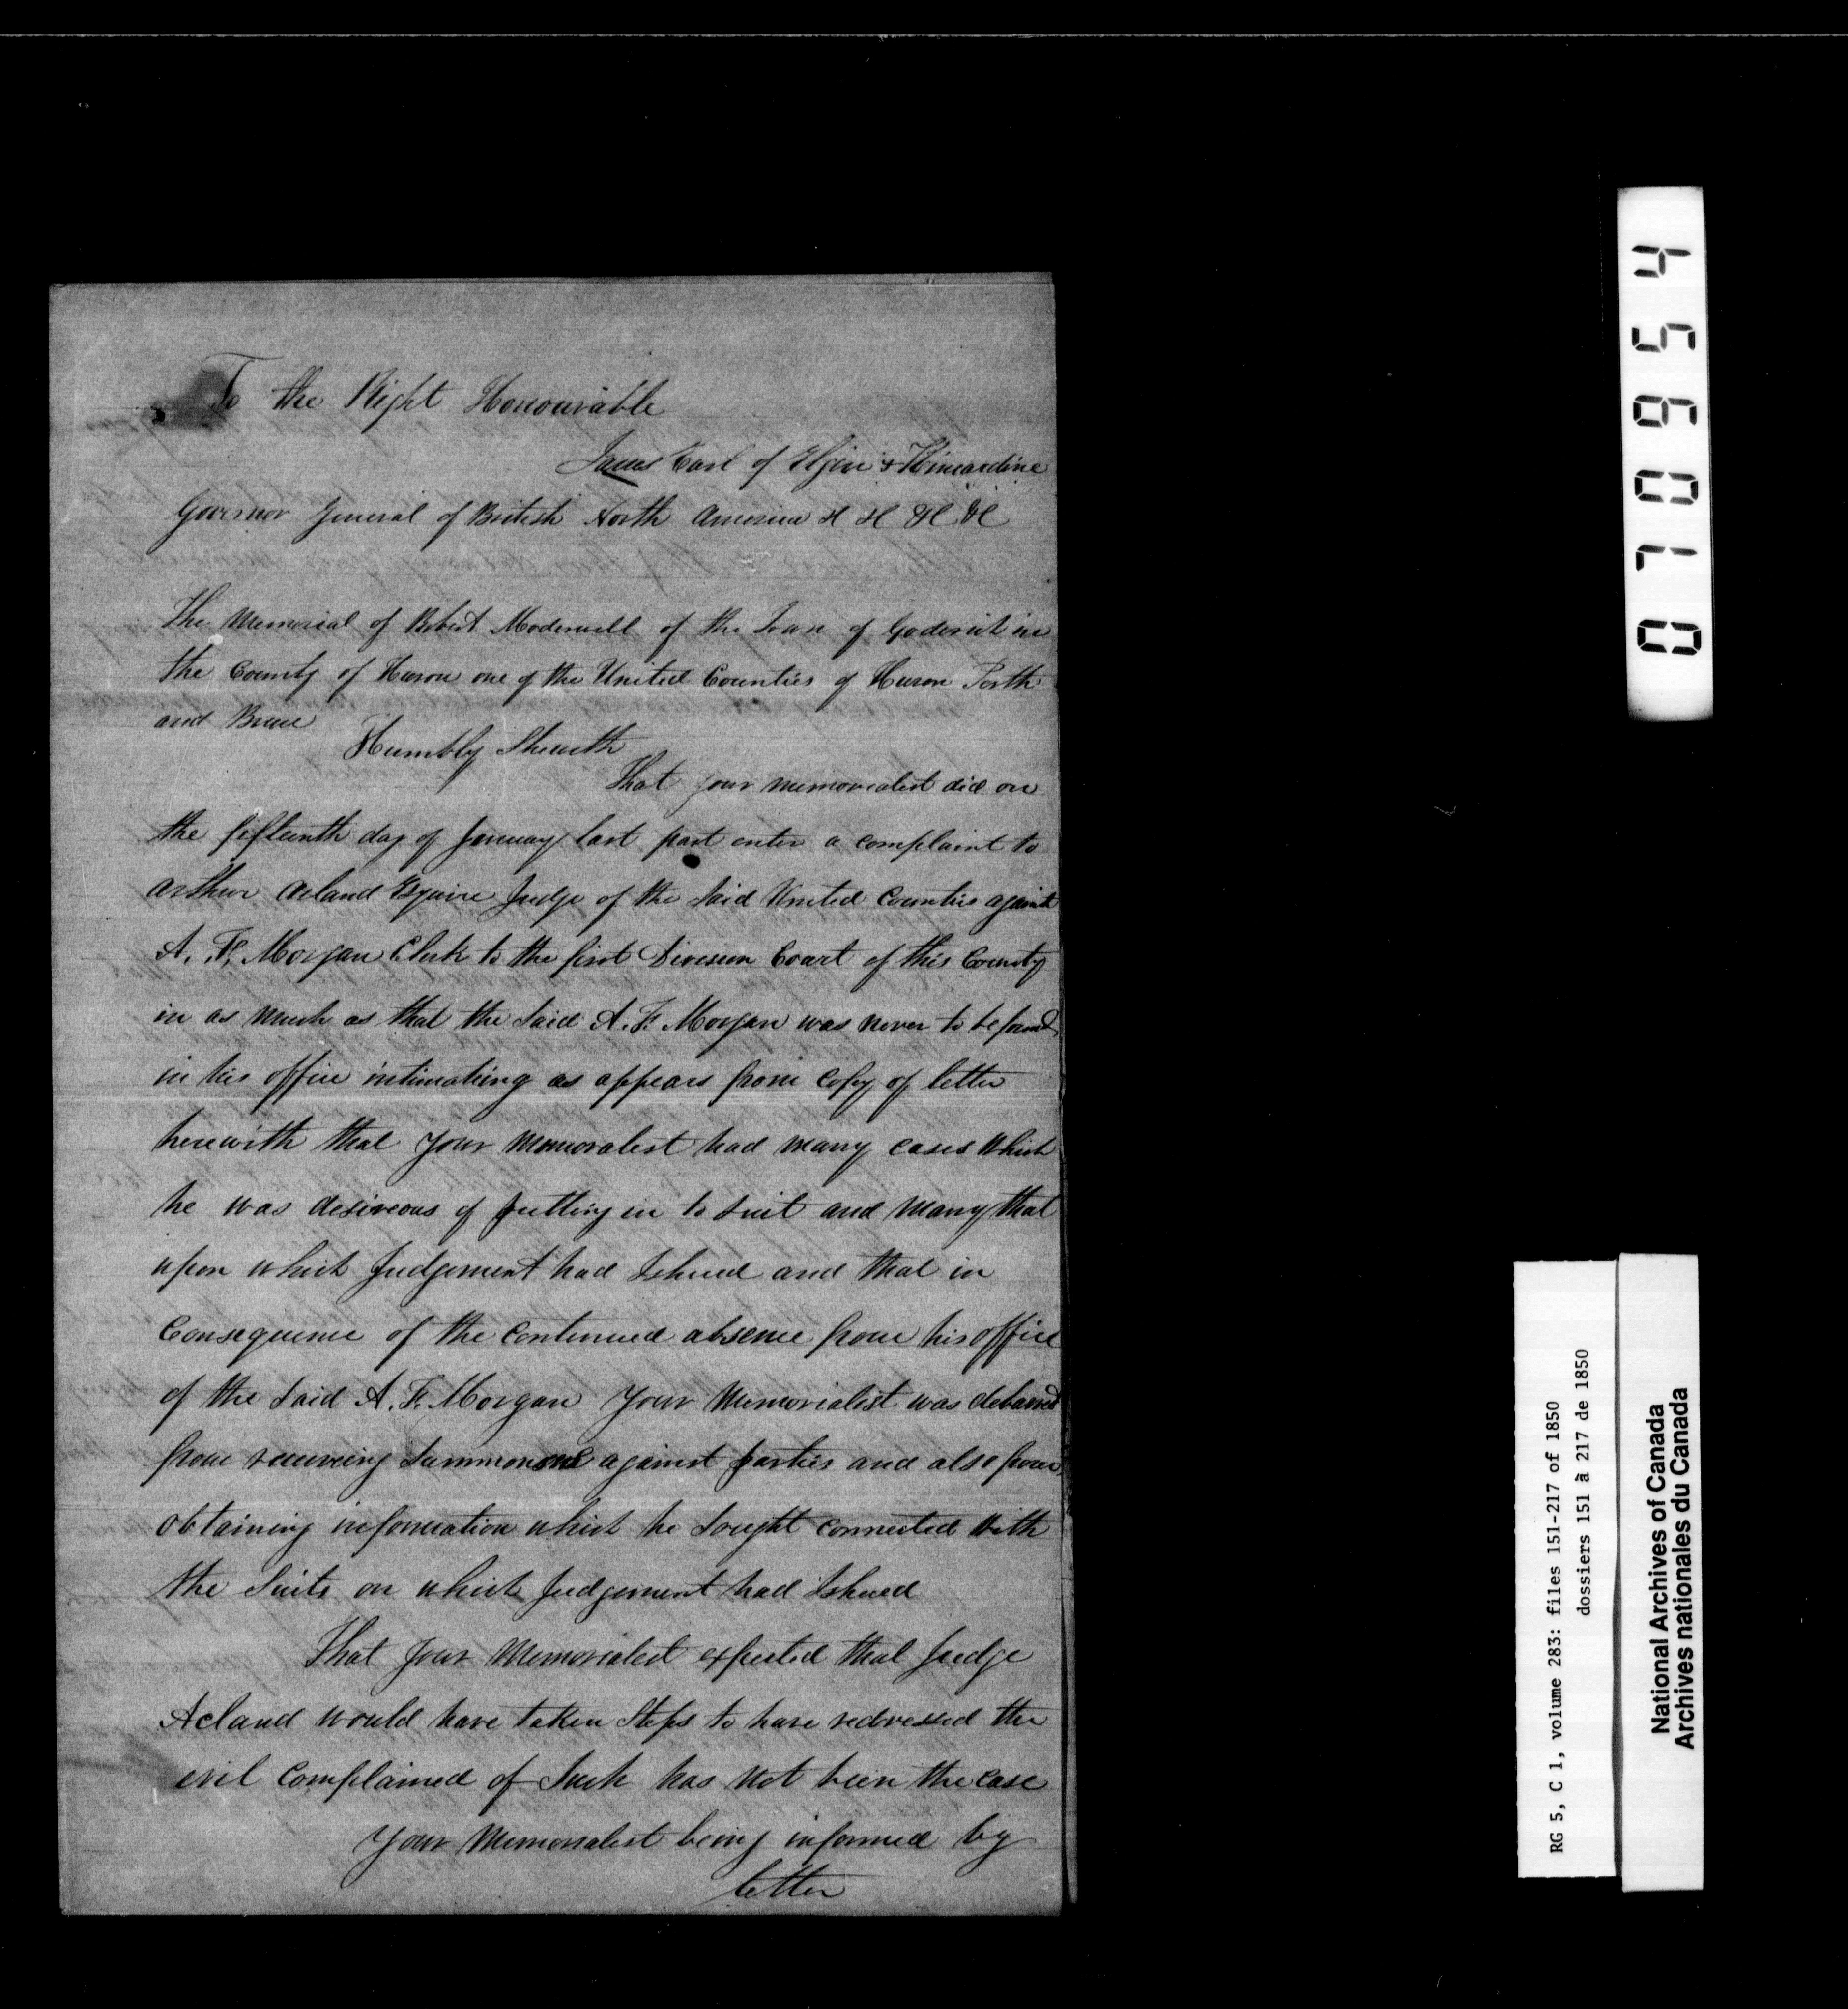 To the Right Honourable
James Earl of Elgin & Kincardine
Governor General of British North America &c &c &c &c
The Memorial of Robert Moderwell of the Town of Goderich in
the County of Huron one of the United Counties of Huron Perth
and Bruce
Humbly Sheweth
That your memorialist did on
the fifteenth day of January last past enter a complaint to
Arthur Acland Esquire Judge of the Said United Counties against
A. F. Morgan Clerk to the first Division Court of this County
in as much as that the Said A. F. Morgan was never to be found
in his office intimating as appears from copy of letter
herewith that your Memoralest had many cases which
he was desireous of putting in to Suit and many that
upon which Judgement had Ishued and that in
Consequence of the continued absence from his office
of the Said A. F. Morgan your Memorialist was debarred
from receiveing Summonses against parties and also from
obtaining information which he Sought connected with
the Suits on which Judgement had Ishued
That your Memorialest expected that Judge
Acland would have taken Steps to have redressed the
evil complained of Such has not been the case
Your Memorialest being informed by
letter
070954
RG 5, C 1, volume 283: files 151-217 of 1850
dossiers 151 à 217 de 1850
National Archives of Canada
Archives nationales du Canada